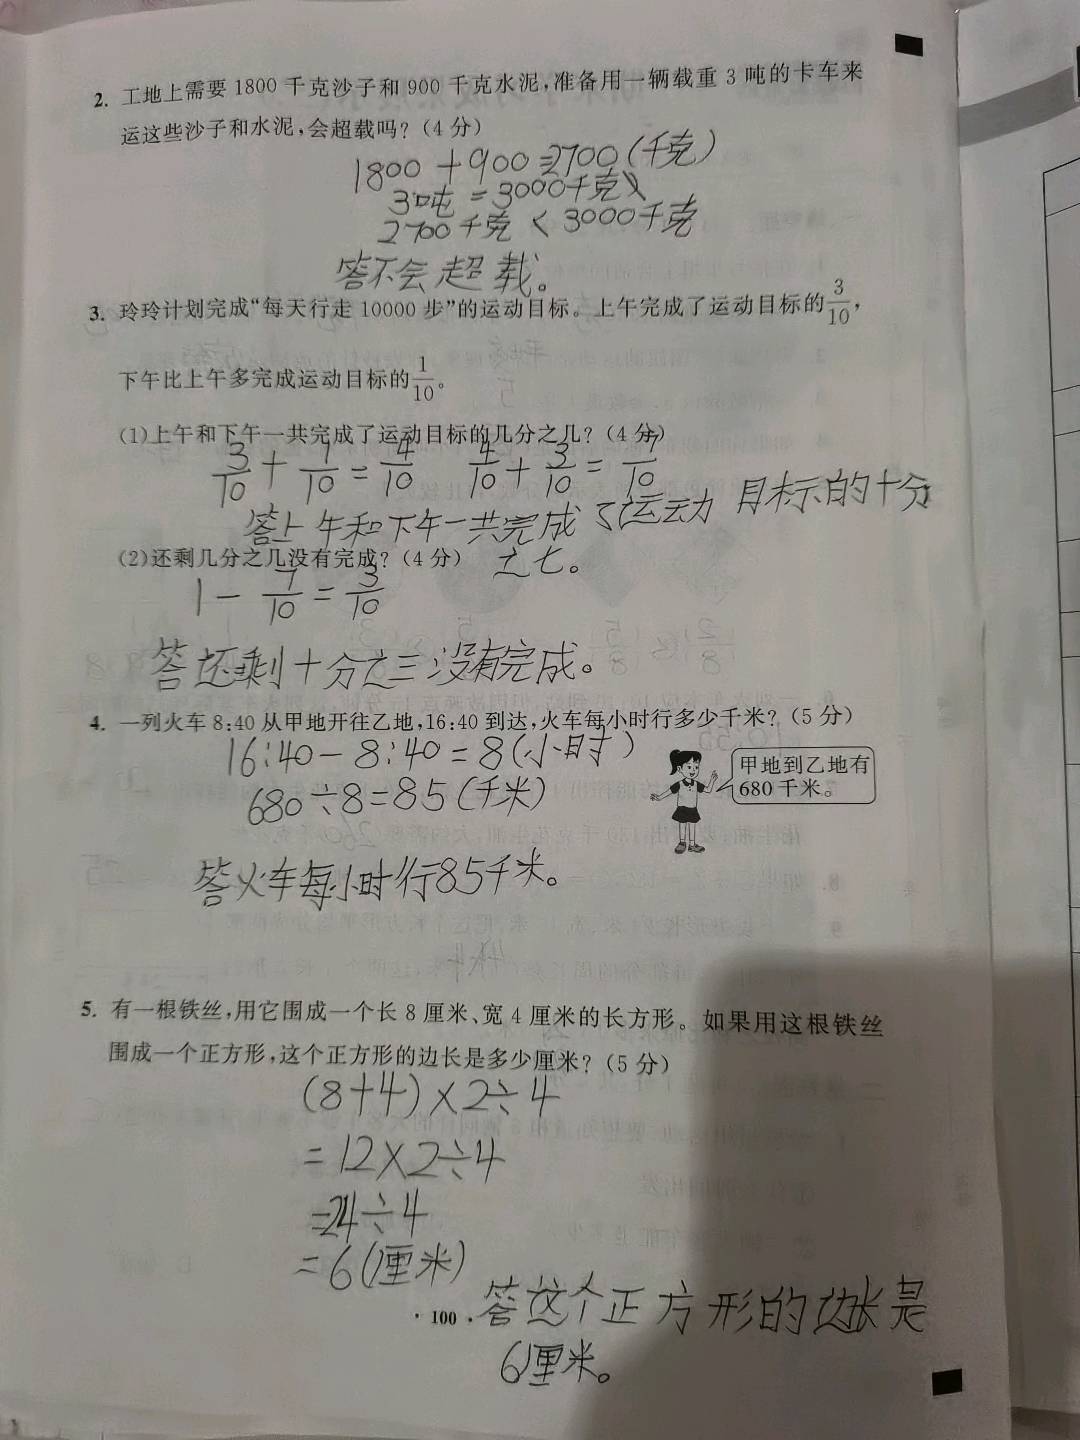 2. 工地上需要 1800 千克沙子和 900 千克水泥,准备用一辆载重 3 吨的卡车来
运这些沙子和水泥,会超载吗?(4 分)
1800+900=2700(千克)
3吨=3000千克
2700千克<3000千克
答不会超载。
3. 玲玲计划完成“每天行走 10000 步”的运动目标。上午完成了运动目标的3/10,
下午比上午多完成运动目标的1/10。
(1)上午和下午一共完成了运动目标的几分之几?(4 分)
3/10+1/10=4/10 4/10+3/10=7/10
答上午和下午一共完成了运动目标的十分
之七。
(2)还剩几分之几没有完成?(4 分)
1-7/10=3/10
答还剩十分之三没有完成。
4. 一列火车 8:40 从甲地开往乙地,16:40 到达,火车每小时行多少千米?(5 分)
16:40-8:40=8(小时)
甲地到乙地有
680 千米。
680÷8=85(千米)
答火车每小时行85千米。
5. 有一根铁丝,用它围成一个长 8 厘米、宽 4 厘米的长方形。如果用这根铁丝
围成一个正方形,这个正方形的边长是多少厘米?(5 分)
(8+4)×2÷4
=12×2÷4
=24÷4
=6(厘米)
答这个正方形的边长是
6厘米。
· 100 ·